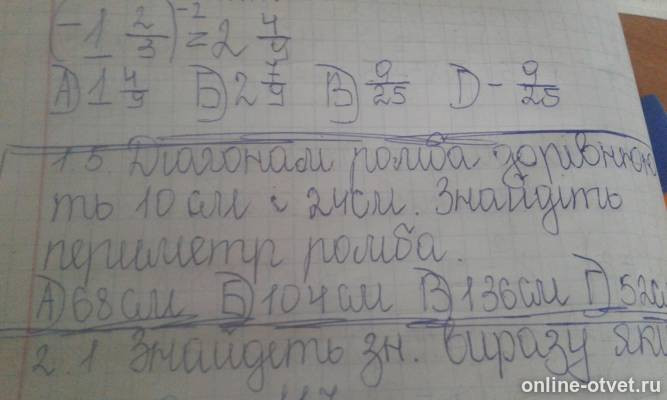 (-1 2/3)^-2 = 2 4/9
А) 1 4/9 Б) 2 7/9 В) 9/25 D - 9/25
1.5. Діагоналі ромба дорівнюю
ть 10 см і 24 см. Знайдіть
периметр ромба.
А) 68 см Б) 104 см В) 136 см Г) 52 см
2.1 Знайдіть зн. виразу як
online-otvet.ru